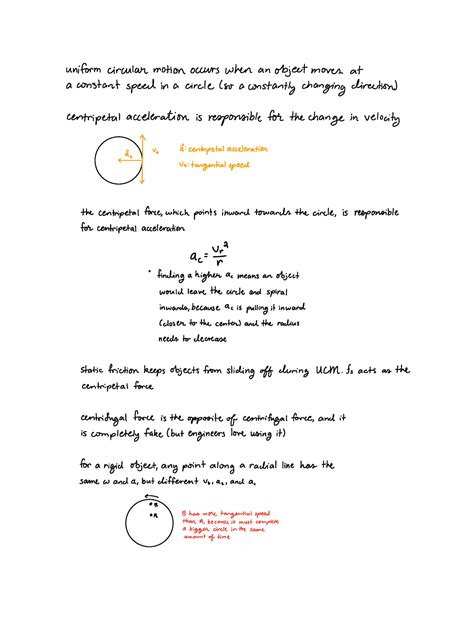 uniform circular motion occurs when an object moves at
a constant speed in a circle (so a constantly changing direction)
centripetal acceleration is responsible for the change in velocity
a⃗c
vₜ
a⃗: centripetal acceleration
vₜ: tangential speed
the centripetal force, which points inward towards the circle, is responsible
for centripetal acceleration
a_c = vₜ²/r
• finding a higher a_c means an object
would leave the circle and spiral
inwards, because a_c is pulling it inward
(closer to the center) and the radius
needs to decrease
static friction keeps objects from sliding off during UCM. fs acts as the
centripetal force
centrifugal force is the opposite of centrifugal force, and it
is completely fake (but engineers love using it)
for a rigid object, any point along a radial line has the
same ω and α, but different vₜ, a_c, and aₜ
B
A
B has more tangential speed
than A, because it must complete
a bigger circle in the same
amount of time